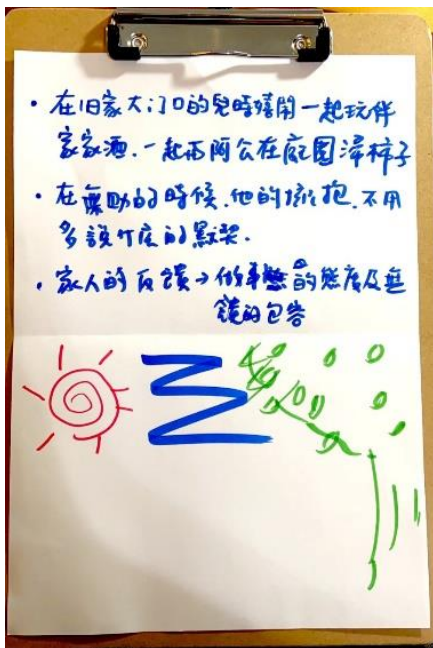 ・在旧家大门口的兒時嬉鬧一起玩伴
家家酒.一起和阿公在庭園澤柿子
・在無助的時候.他的擁抱.不用
多說什麼的默契.
・家人的反饋→做事的態度及無
的包容